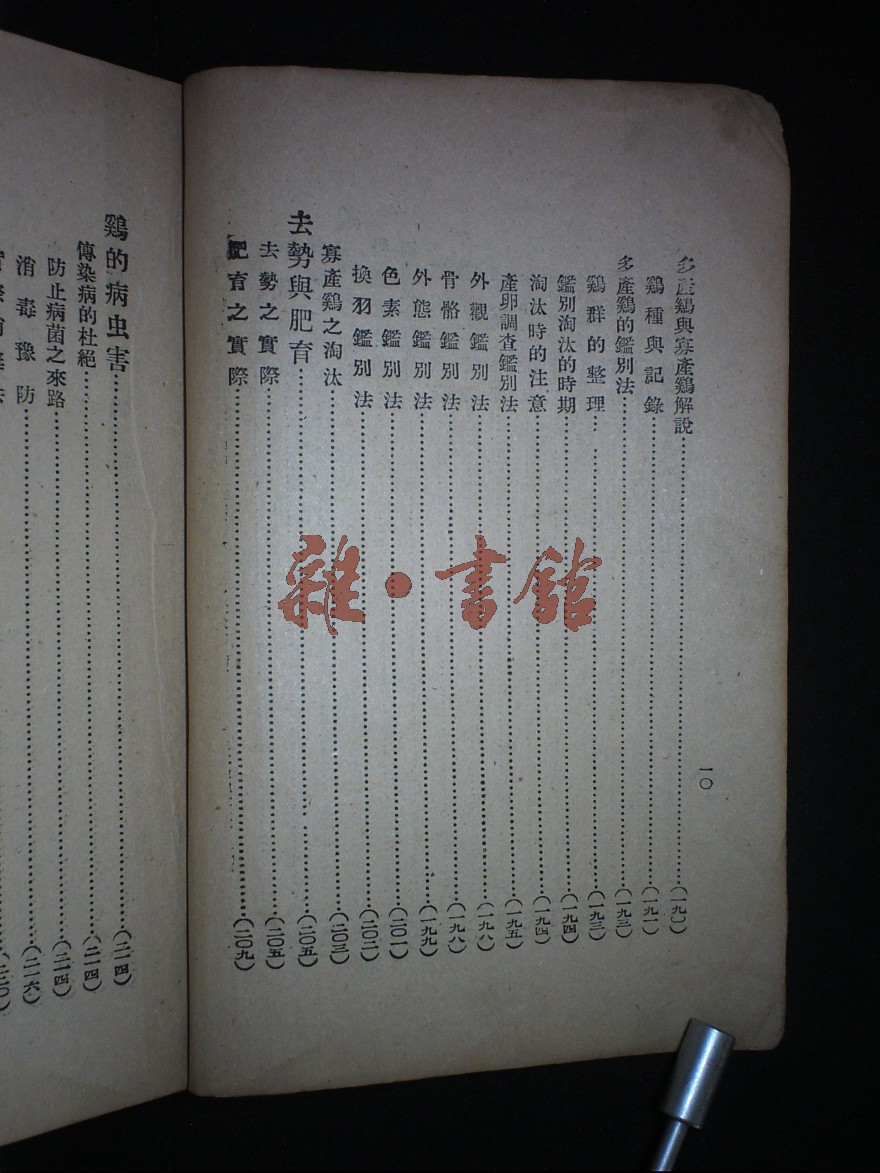 多產鷄與寡產鷄解說……(一九一)
鷄種與記錄……(一九一)
多產鷄的鑑別法……(一九三)
鷄群的整理……(一九三)
鑑別淘汰的時期……(一九四)
淘汰時的注意……(一九四)
產卵調查鑑別法……(一九五)
外觀鑑別法……(一九六)
骨骼鑑別法……(一九八)
外態鑑別法……(一九九)
色素鑑別法……(二〇一)
換羽鑑別法……(二〇二)
寡產鷄之淘汰……(二〇三)
去勢與肥育……(二〇五)
去勢之實際……(二〇五)
肥育之實際……(二〇九)
一〇
鷄的病虫害……(二一四)
傳染病的杜絕……(二一四)
防止病菌之來路……(二一四)
消毒豫防……(二一六)
雜·書館